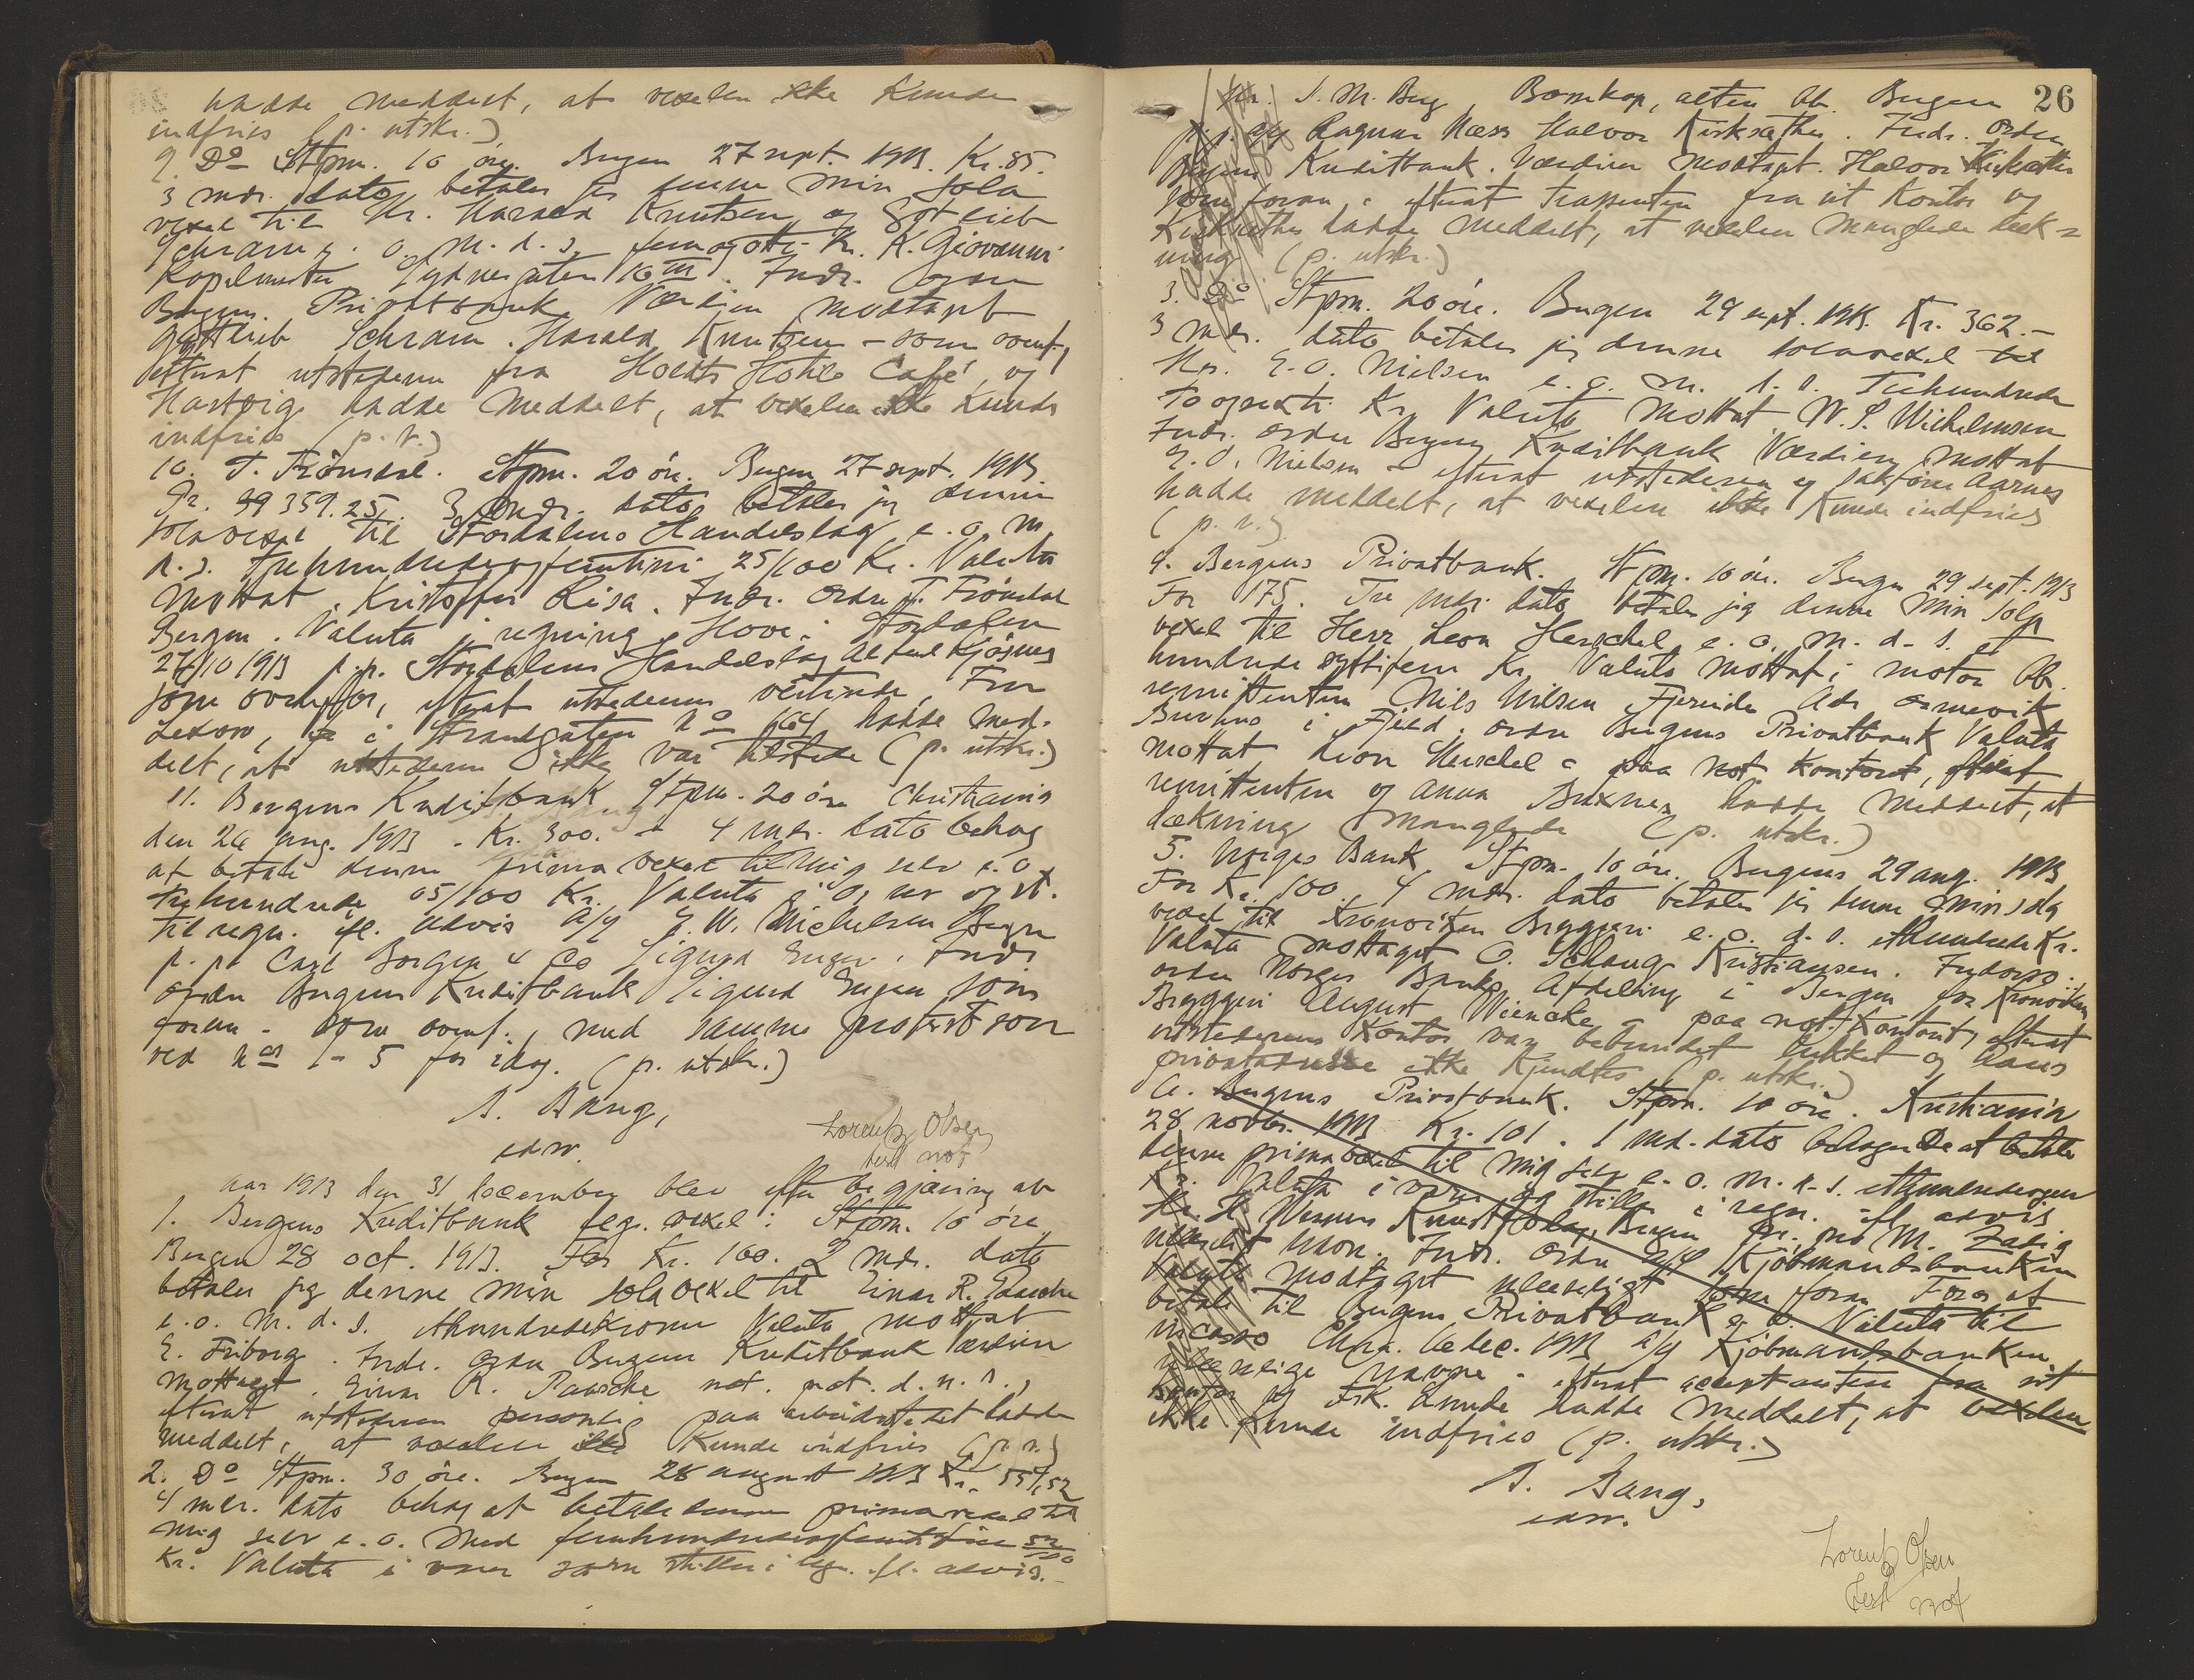 hadde meddelt, at vexelen ikke kunde
indfries (p. utskr.)
9. Do Stpm. 10 øre. Bergen 27 sept. 1913. Kr. 85.
3 mdr. dato betaler jeg denne min sola
vexel til Hr. Harald Knutsen og Gotlieb
Schram e. o. m. d. s. femogotti Kr. K. Giovanni
Kapelmester Sydnesgaten 10 III. Indr. Ordre
Bergens Privatbank Værdien modtaget
Gottlieb Schram. Harald Knutsen - som ovenf.,
efterat utstederen fra Holdts Hotels Café, og
Hartvig hadde meddelt, at vexelen ikke kunde
indfries (p. v.)
10. T. Frönsdal. Stpm. 20 öre. Bergen 27 sept. 1913.
Kr. 359.25. 3 mdr. dato betaler jeg denne
solavexel til Stordalens Handelslag e. o. m.
d. s. Trehundredeogfemtini 25/100 Kr. Valuta
mottat. Kristoffer Risa. Indr. Ordre T. Frönsdal
Bergen. Valuta i regning. Hove i Stordalen
27/10 1913 p. p. Stordalens Handelslag
som ovenfor, efterat utstederensværtinde, Fru
Lexow, i Strandgaten No 664 hadde med-
delt, at utstederen ikke var tilstede (p. utskr.)
11. Bergens Kreditbank, Stpm. 20 öre Christiania
den 26 aug. 1913 - Kr. 300. - 4 mdr. dato behag
at betale denne prima vexel til mig selv e. o.
Trehundrede 05/100 Kr. Valuta
til regn. ifl. advis a/g E. W. Michelsen Bergen
p. p. Carl Borgen & Co Sigurd Enger. Indr.
ordre Bergens Kreditbank Sigurd Enger som
foran - som ovenf., med samme protest som
ved No 1 - 5 for idag. (p. utskr.)
A. Bang,
edsv.
Lorentz Olsen
test not
Aar 1913 den 31 december blev efter begjæring av
1. Bergens Kreditbank flg. vexel: Stpm. 10 öre
Bergen 28 oct. 1913. For Kr. 100. 2 mdr. dato
betaler jeg denne min sola vexel til Einar R. Paasche
e. o. m. d. s. Ethundrede Kroner Valuta mottat
E. Friborg. Indr. Ordre Bergens Kreditbank Værdien
mottaget. Einar R. Paasche not. prot. d. n. s.,
efterat utstederen personlig paa arbeidsstedet hadde
meddelt, at vexelen ikke kunde indfries (p. v.)
2. Do Stpm. 30 öre. Bergen 28 august 1913 Kr. 554,52
4 mdr. dato behag at betale denne primavexel til
mig selv e. o. Med femhundredeogfemtifire 52/100
Kr. Valuta i varer som stilles i regn. ifl. advis. -
26
Hr. J. M. Berg, Bossekop, Alten Ab. Bergen
p. p. Ragnar Næss Halvor Kirksæther. Indr. Ordre
Bergens Kreditbank. Værdien modtaget. Halvor Kirksæther
som foran, efterat trassenten fra sit kontor og
Kirksæther hadde meddelt, at vexelen manglede dæk-
ning (p. utskr.)
3. Do Stpm. 20 öre. Bergen 29 sept. 1913. Kr. 362.-
3 mdr. dato betaler jeg denne solavexel til
Hr. E. O. Nielsen e. o. m. d. s. Trehundrede
toogsexti Kr. Valuta mottat. W. S. Wichelmsen
Indr. ordre Bergens Kreditbank Værdien mottat
E. O. Nielsen - efterat utstederen og sakförer Aarnes
hadde meddelt, at vexelen ikke kunde indfries
(p. v.)
4. Bergens Privatbank. Stpm. 10 öre. Bergen 29 sept. 1913
For 175. Tre mdr. dato betaler jeg denne min sola
vexel til Herr Leon Herschel e. o. m. d. s. et
hundrede syttifem Kr. Valuta mottat i motor Ab.
remittenten Nils Nilsen Fjereide Adr.
i Fjeld. ordre Bergens Privatbank Valuta
mottat Leon Herschel - paa not. kontoret, efterat
remittenten og Anna hadde meddelt, at
dækning manglede (p. utskr.)
5. Norges Bank Stpm. 10 öre. Bergen 29 aug. 1913
For Kr. 100. 4 mdr. dato betaler jeg denne min sola
vexel til Kronoviken Bryggeri e. o. d. s. Ethundrede Kr.
Valuta mottaget O. Schaug Kristiansen. Indorso.
ordre Norges Banks Afdeling i Bergen for Kronoviken
Bryggeri August Wiencke - paa not. kontoret, efterat
utstederens kontor var beboendet lukket og hans
privatadresse ikke kjendtes (p. utskr.)
6. Bergens Privatbank. Stpm. 10 öre. Kristiania
28 novbr. 1913 Kr. 101. 1 md. dato behager De at betale
denne primavexel til mig selv e. o. m. d. s. Ethundredeogen
Kr. Valuta i varer og stilles i regn. ifl. advis
Hr. H. Bergen pr. pro M. Zadig
Indr. Ordre a/g Kjöbmandsbanken
Valuta modtaget ulæseligt som foran For os at
betale til Bergens Privatbank e. o. Valuta til
incasso Chra. 6 dec. 1913 a/g Kjöbmandsbanken
ulæselige navne - efterat acceptanten fra sit
kontor og frk. Lunde hadde meddelt, at vexelen
ikke kunde indfries (p. utskr.)
A. Bang,
edsv.
Lorentz Olsen
test not